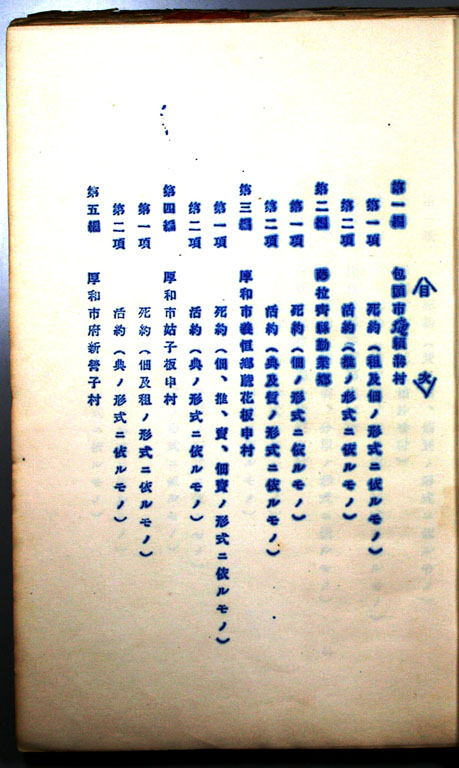 目次
第一編 包頭市
第一項 死約(租及佃ノ形式ニ依ルモノ)
第二項 活約(推ノ形式ニ依ルモノ)
第二編 薩拉齊縣勤業鄉
第一項 死約(佃ノ形式ニ依ルモノ)
第二項 活約(典及質ノ形式ニ依ルモノ)
第三編 厚和市義恒鄉麗花板申村
第一項 死約(佃、推、賣、佃賣ノ形式ニ依ルモノ)
第二項 活約(典ノ形式ニ依ルモノ)
第四編 厚和市姑子板申村
第一項 死約(佃及租ノ形式ニ依ルモノ)
第二項 活約(典ノ形式ニ依ルモノ)
第五編 厚和市府新營子村